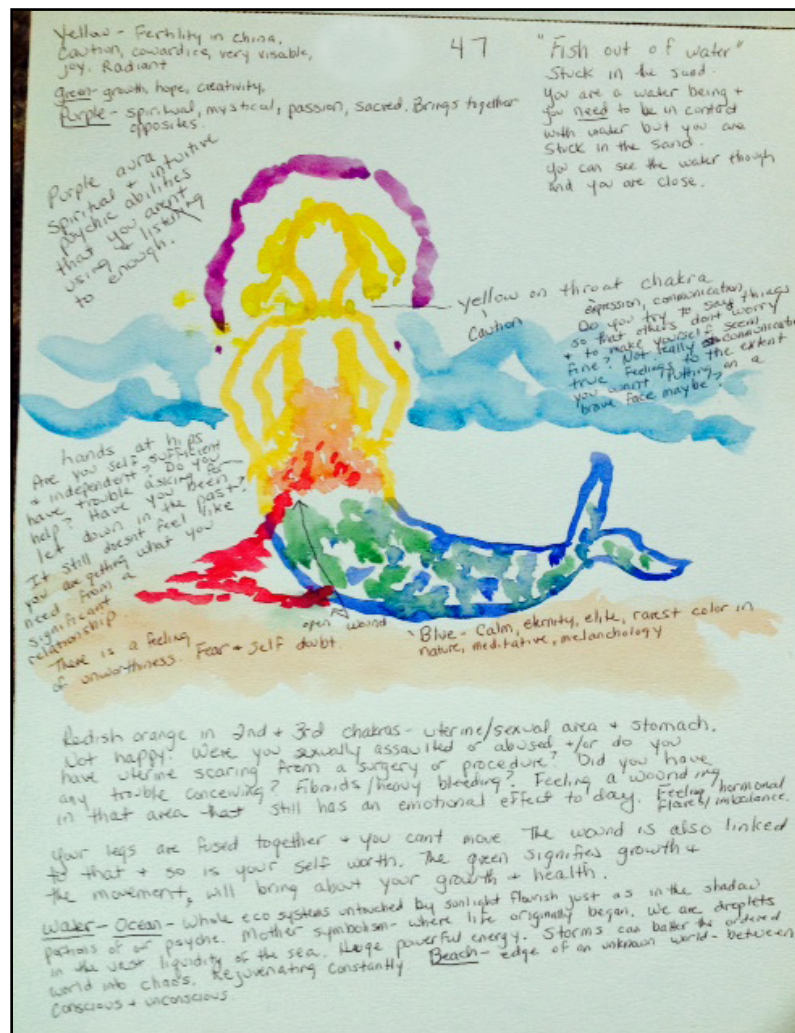 Yellow - Fertility in china,
Caution, cowardice, very visable,
joy. Radiant
green- growth, hope, creativity,
Purple- spiritual, mystical, passion, sacred. Brings together
opposites.
47
"Fish out of water"
Stuck in the sand.
You are a water being +
you need to be in contact
with water but you are
stuck in the sand.
You can see the water though
and you are close.
Purple aura
spiritual + intuitive
psychic abilities
that you arent
using + listening
to enough.
yellow on throat chakra
Caution
expression, communication,
Do you try to say things
so that others dont worry
+ to make yourself seem
fine? Not really communicating
true feelings to the extent
you want? Putting on a
brave face maybe?
hands at hips
Are you self sufficient
+ independent? Do you
have trouble asking for
help? Have you been
let down in the past?
It still doesnt feel like
you are getting what you
need from a
significant
relationship.
There is a feeling
of unworthiness. Fear + self doubt.
open wound
Blue- Calm, eternity, elite, rarest color in
nature, meditative, melanchology
Redish orange in 2nd + 3rd chakras- uterine/sexual area + stomach.
Not happy. Were you sexually assaulted or abused +/or do you
have uterine scaring from a surgery or procedure? Did you have
any trouble conceiving? Fibroids/heavy bleeding? Feeling a wounding
in that area that still has an emotional effect to day. Feeling hormonal
flares/imbalance.
Your legs are fused together + you cant move The wound is also linked
to that + so is your self worth. The green signifies growth +
the movement, will bring about your growth + health.
Water- Ocean- Whole eco systems untouched by sunlight flourish just as in the shadow
portions of or psyche. Mother symbolism- where life originally began. We are droplets
in the vast liquidity of the sea. Huge powerful energy. Storms can batter the ordered
world into chaos. Rejuvenating constantly Beach- edge of an unknown world- between
conscious + unconscious.